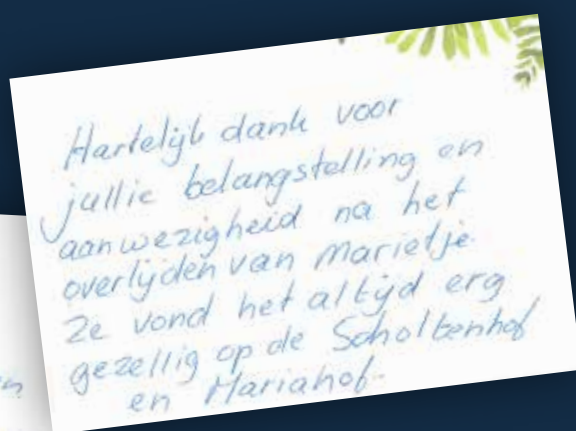 Hartelijk dank voor
jullie belangstelling en
aanwezigheid na het
overlijden van Marietje.
Ze vond het altijd erg
gezellig op de Scholtenhof
en Mariahof.